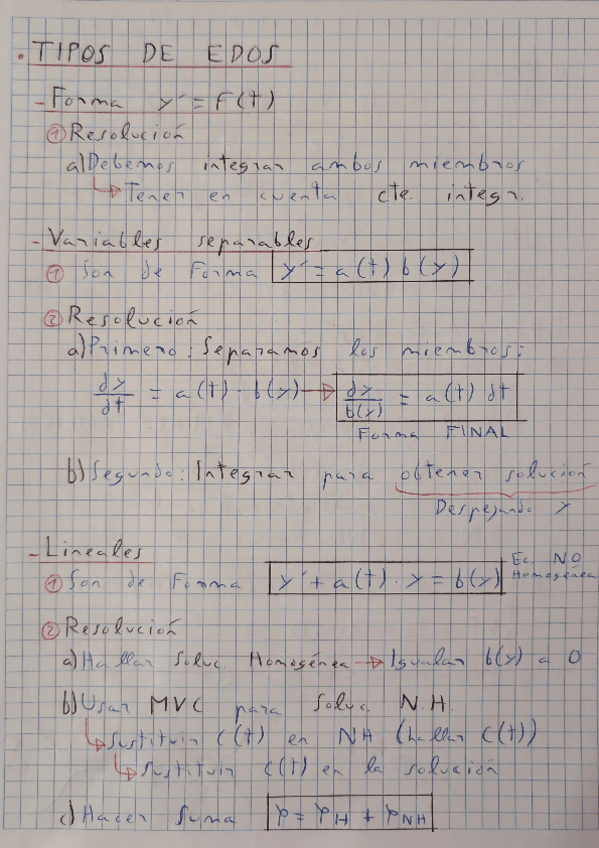 . TIPOS DE EDOS
- Forma y' = f(t)
① Resolución
a) Debemos integrar ambos miembros
↳ Tener en cuenta cte. integr.
- Variables separables
① Son de Forma y' = a(t) b(y)
② Resolución
a) Primero: Separamos los miembros:
dy/dt = a(t) · b(y) → dy/b(y) = a(t) dt
Forma FINAL
b) Segundo: Integrar para obtener solución
Despejando y
- Lineales
① Son de Forma y' + a(t) · y = b(y) Ec. NO Homogénea
② Resolución
a) Hallar Soluc. Homogénea → Igualar b(y) a 0
b) Usar MVC para Soluc N.H.
↳ Sustituir C(t) en NH (hallar C(t))
↳ Sustituir C(t) en la solución
c) Hacer Suma φ = φH + φNH